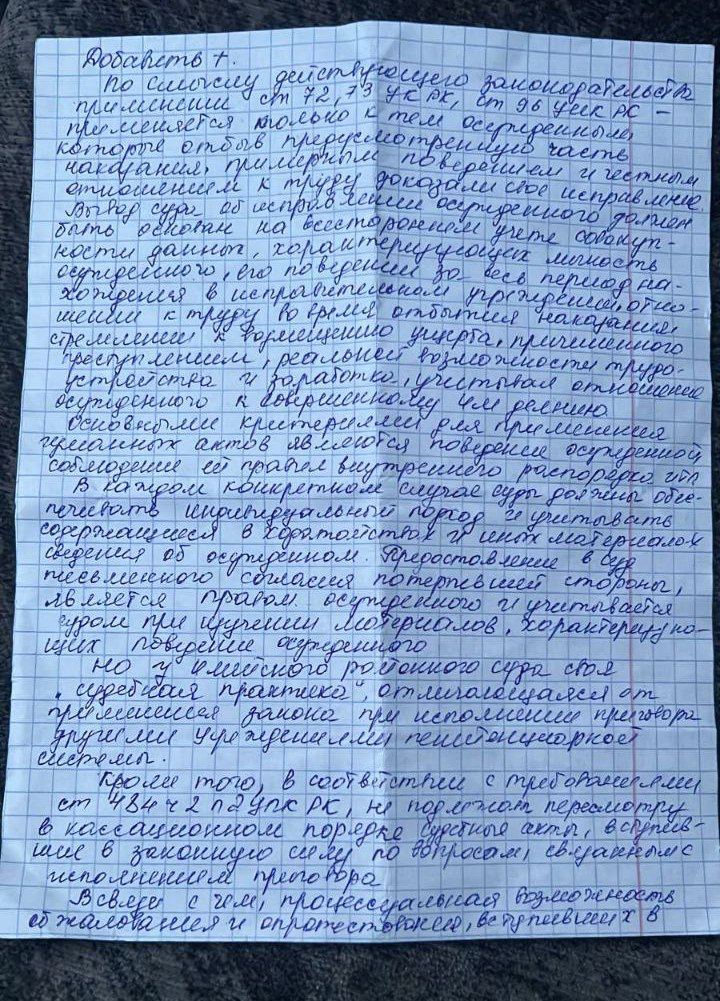 Добавить +.
По смыслу действующего законодательства
применении ст 72, 73 УК РК, ст 96 УИК РК –
применяется только к тем осужденным,
которые отбыв предусмотренную часть
наказания, примерным поведением и честным
отношением к труду доказали свое исправление.
Вывод суда об исправлении осужденного должен
быть основан на всестороннем учете совокуп-
ности данных, характеризующих личность
осужденного, его поведении за весь период на-
хождения в исправительном учреждении, отно-
шении к труду во время отбытия наказания,
стремлении к возмещению ущерба, причиненного
преступлением, реальной возможности трудо-
устройства и заработка, учитывая отношение
осужденного к совершенному им деянию.
Основными критериями для применения
гуманных актов являются поведение осужденной,
соблюдение ей правил внутреннего распорядка
В каждом конкретном случае суды должны обес-
печивать индивидуальный подход и учитывать
содержащиеся в ходатайствах и иных материалах
сведения об осужденном. Предоставление в суд
письменного согласия потерпевшей стороны,
является правом осужденного и учитывается
судом при изучении материалов, характеризую-
щих поведение осужденного
Но у районного суда своя
"судебная практика", отличающаяся от
применения закона при исполнении приговора
другими учреждениями пенитенциарной
системы.
Кроме того, в соответствии с требованиями
ст 484 ч 2 п 2 УПК РК, не подлежат пересмотру
в кассационном порядке судебные акты, вступив-
шие в законную силу по вопросам, связанным с
исполнением приговора
В связи с чем, процессуальная возможность
обжалования и опротестования, вступивших в